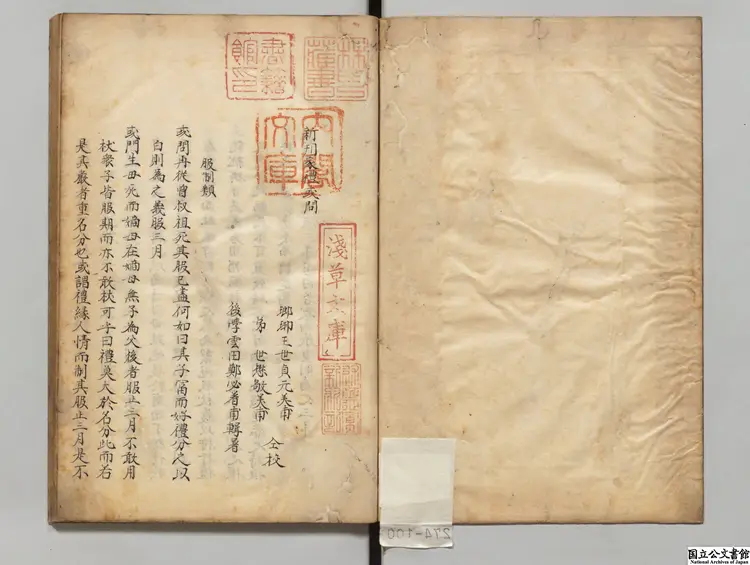 新刊家禮或問
琅琊王世貞元美甫
弟 世懋敬美甫 仝校
後學雲田鄭必著甫輯著
服制類
或問再從曾叔祖死其服已盡何如曰其子富而好禮分之以
白則為之義服三月
或門生母死而嫡母在嫡母無子為父後者服止三月不敢用
杖衆子皆服期而亦不敢杖可乎曰禮莫大於名分此而若
是其嚴者重名分也或謂禮緣人情而制其服止三月是不
書籍館印
内閣文庫
淺草文庫
274-100
国立公文書館
National Archives of Japan